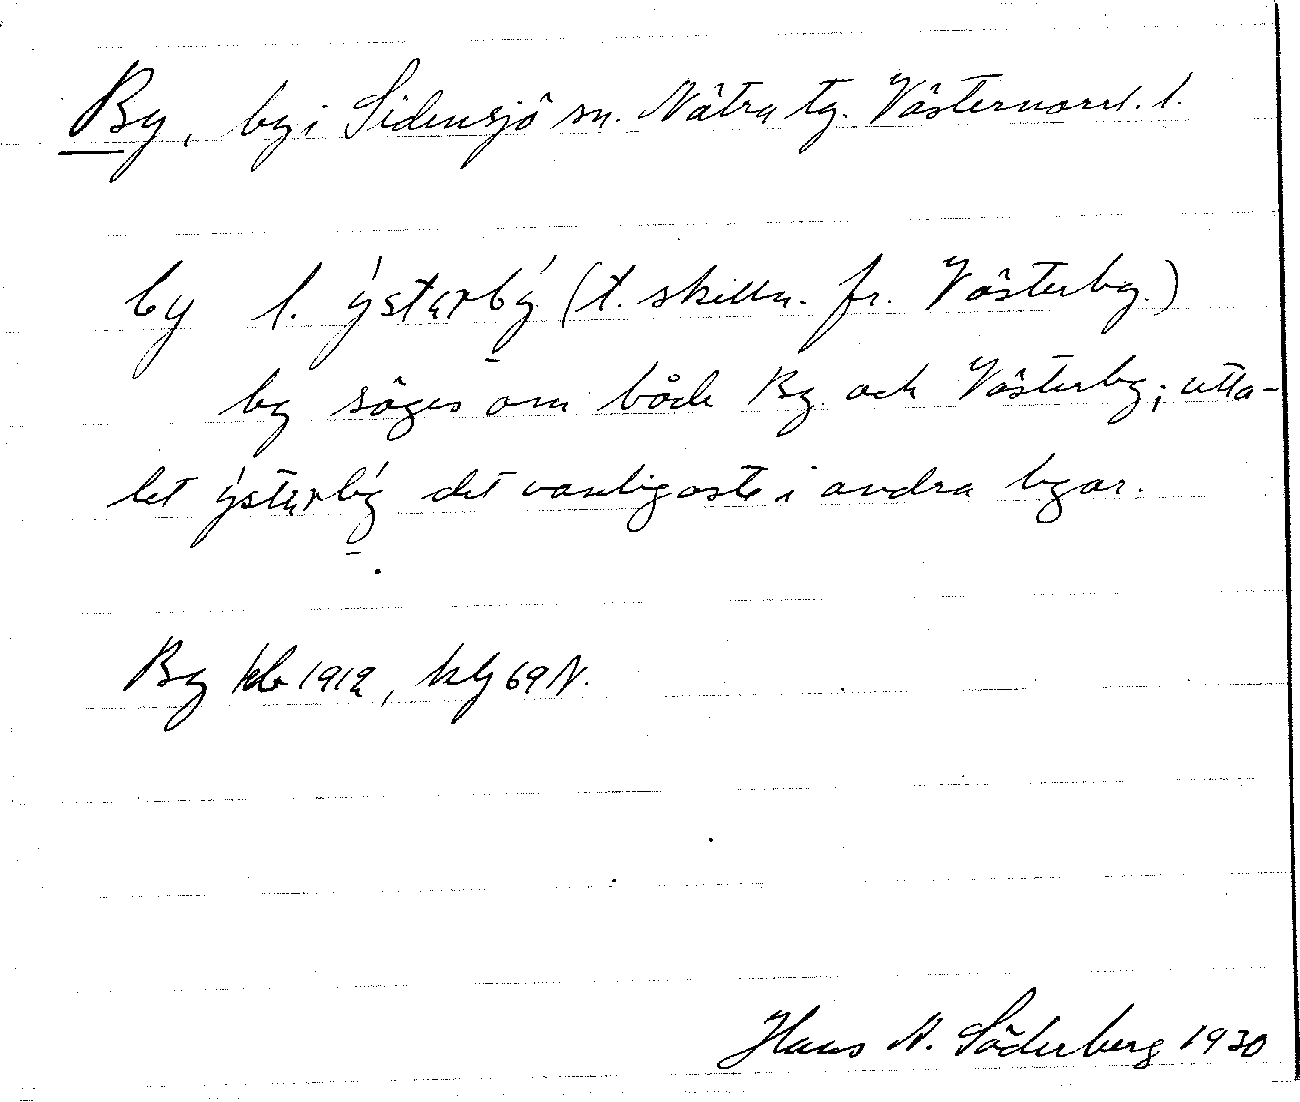 By, by i Sidensjö sn. Nätra tg. Västernorrl. l.
by l. ýstərbý (t. skilln. fr. Västerby.)
by säges om både By och Västerby; utta-
let ýstərbý det vanligaste i andra byar.
By kb 1912, kbg 69 N.
Hans N. Söderberg 1930